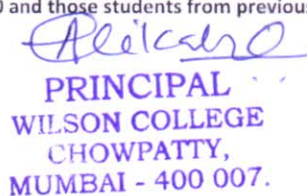 and those students from previous
PRINCIPAL
WILSON COLLEGE
CHOWPATTY,
MUMBAI - 400 007.